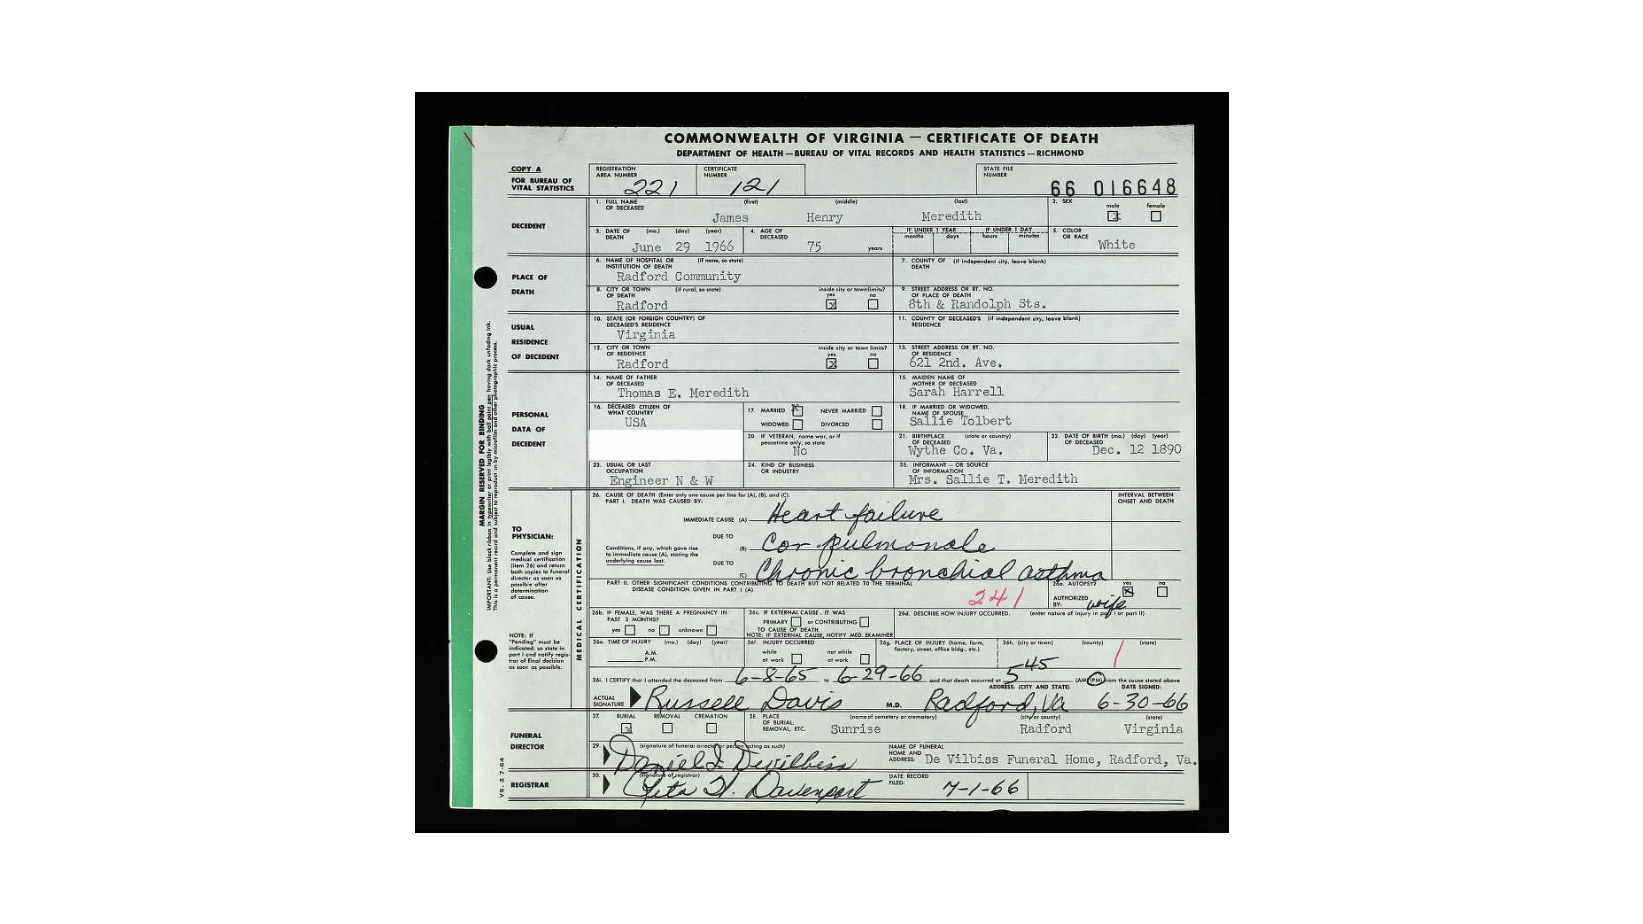 COMMONWEALTH OF VIRGINIA — CERTIFICATE OF DEATH
DEPARTMENT OF HEALTH—BUREAU OF VITAL RECORDS AND HEALTH STATISTICS—RICHMOND
COPY A
FOR BUREAU OF VITAL STATISTICS
REGISTRATION AREA NUMBER 221
CERTIFICATE NUMBER 121
STATE FILE NUMBER 66 016648
DECEDENT
1. FULL NAME OF DECEASED (first) (middle) (last)
James Henry Meredith
2. SEX male female
3. DATE OF DEATH (mo.) (day) (year)
June 29 1966
4. AGE OF DECEASED 75 years
IF UNDER 1 YEAR months days
IF UNDER 1 DAY hours minutes
5. COLOR OR RACE White
PLACE OF DEATH
6. NAME OF HOSPITAL OR INSTITUTION OF DEATH (if none, so state)
Radford Community
7. COUNTY OF DEATH (if independent city, leave blank)
8. CITY OR TOWN OF DEATH (if rural, so state)
Radford
inside city or town limits? yes no
9. STREET ADDRESS OR RT. NO. OF PLACE OF DEATH
8th & Randolph Sts.
USUAL RESIDENCE OF DECEDENT
10. STATE (OR FOREIGN COUNTRY) OF DECEASED'S RESIDENCE
Virginia
11. COUNTY OF DECEASED'S RESIDENCE (if independent city, leave blank)
12. CITY OR TOWN OF RESIDENCE
Radford
inside city or town limits? yes no
13. STREET ADDRESS OR RT. NO. OF RESIDENCE
621 2nd. Ave.
PERSONAL DATA OF DECEDENT
14. NAME OF FATHER OF DECEASED
Thomas E. Meredith
15. MAIDEN NAME OF MOTHER OF DECEASED
Sarah Harrell
16. DECEASED CITIZEN OF WHAT COUNTRY
USA
17. MARRIED NEVER MARRIED
WIDOWED DIVORCED
18. IF MARRIED OR WIDOWED, NAME OF SPOUSE
Sallie Tolbert
20. IF VETERAN, name war, or if peacetime only, so state
No
21. BIRTHPLACE OF DECEASED (state or country)
Wythe Co. Va.
22. DATE OF BIRTH OF DECEASED (mo.) (day) (year)
Dec. 12 1890
23. USUAL OR LAST OCCUPATION
Engineer N & W
24. KIND OF BUSINESS OR INDUSTRY
25. INFORMANT — OR SOURCE OF INFORMATION
Mrs. Sallie T. Meredith
MARGIN RESERVED FOR BINDING
MEDICAL CERTIFICATION
TO PHYSICIAN:
Complete and sign medical certification (item 26) and return both copies to funeral director as soon as possible after determination of cause.
NOTE: If "Pending" must be indicated, so state in part I and notify registrar of final decision as soon as possible.
26. CAUSE OF DEATH (Enter only one cause per line for (A), (B), and (C).
PART I. DEATH WAS CAUSED BY:
INTERVAL BETWEEN ONSET AND DEATH
IMMEDIATE CAUSE (A) Heart failure
DUE TO
Conditions, if any, which gave rise to immediate cause (A), stating the underlying cause last.
(B) Cor pulmonale
DUE TO
(C) Chronic bronchial asthma
PART II. OTHER SIGNIFICANT CONDITIONS CONTRIBUTING TO DEATH BUT NOT RELATED TO THE TERMINAL DISEASE CONDITION GIVEN IN PART I (A)
241
26a. AUTOPSY? yes no
AUTHORIZED BY: wife
26b. IF FEMALE, WAS THERE A PREGNANCY IN PAST 3 MONTHS?
yes no unknown
26c. IF EXTERNAL CAUSE, IT WAS
PRIMARY or CONTRIBUTING
TO CAUSE OF DEATH.
NOTE: IF EXTERNAL CAUSE, NOTIFY MED. EXAMINER
26d. DESCRIBE HOW INJURY OCCURRED. (enter nature of injury in part I or part II)
26e. TIME OF INJURY (mo.) (day) (year)
A.M.
P.M.
26f. INJURY OCCURRED
while at work not while at work
26g. PLACE OF INJURY (home, farm, factory, street, office bldg., etc.)
26h. (city or town) (county) (state)
26i. I CERTIFY that I attended the deceased from 6-8-65 to 6-29-66 and that death occurred at 5 45 (AM) (PM) from the cause stated above
ACTUAL SIGNATURE Russell Davis M.D.
ADDRESS: (CITY AND STATE) Radford, Va
DATE SIGNED: 6-30-66
FUNERAL DIRECTOR
27. BURIAL REMOVAL CREMATION
28. PLACE OF BURIAL, REMOVAL, ETC. (name of cemetery or crematory) (city or county) (state)
Sunrise Radford Virginia
29. (signature of funeral director or person acting as such)
Daniel I. Devilbiss
NAME OF FUNERAL HOME AND ADDRESS: De Vilbiss Funeral Home, Radford, Va.
REGISTRAR
30. (signature of registrar)
Davenport
DATE RECORD FILED: 7-1-66